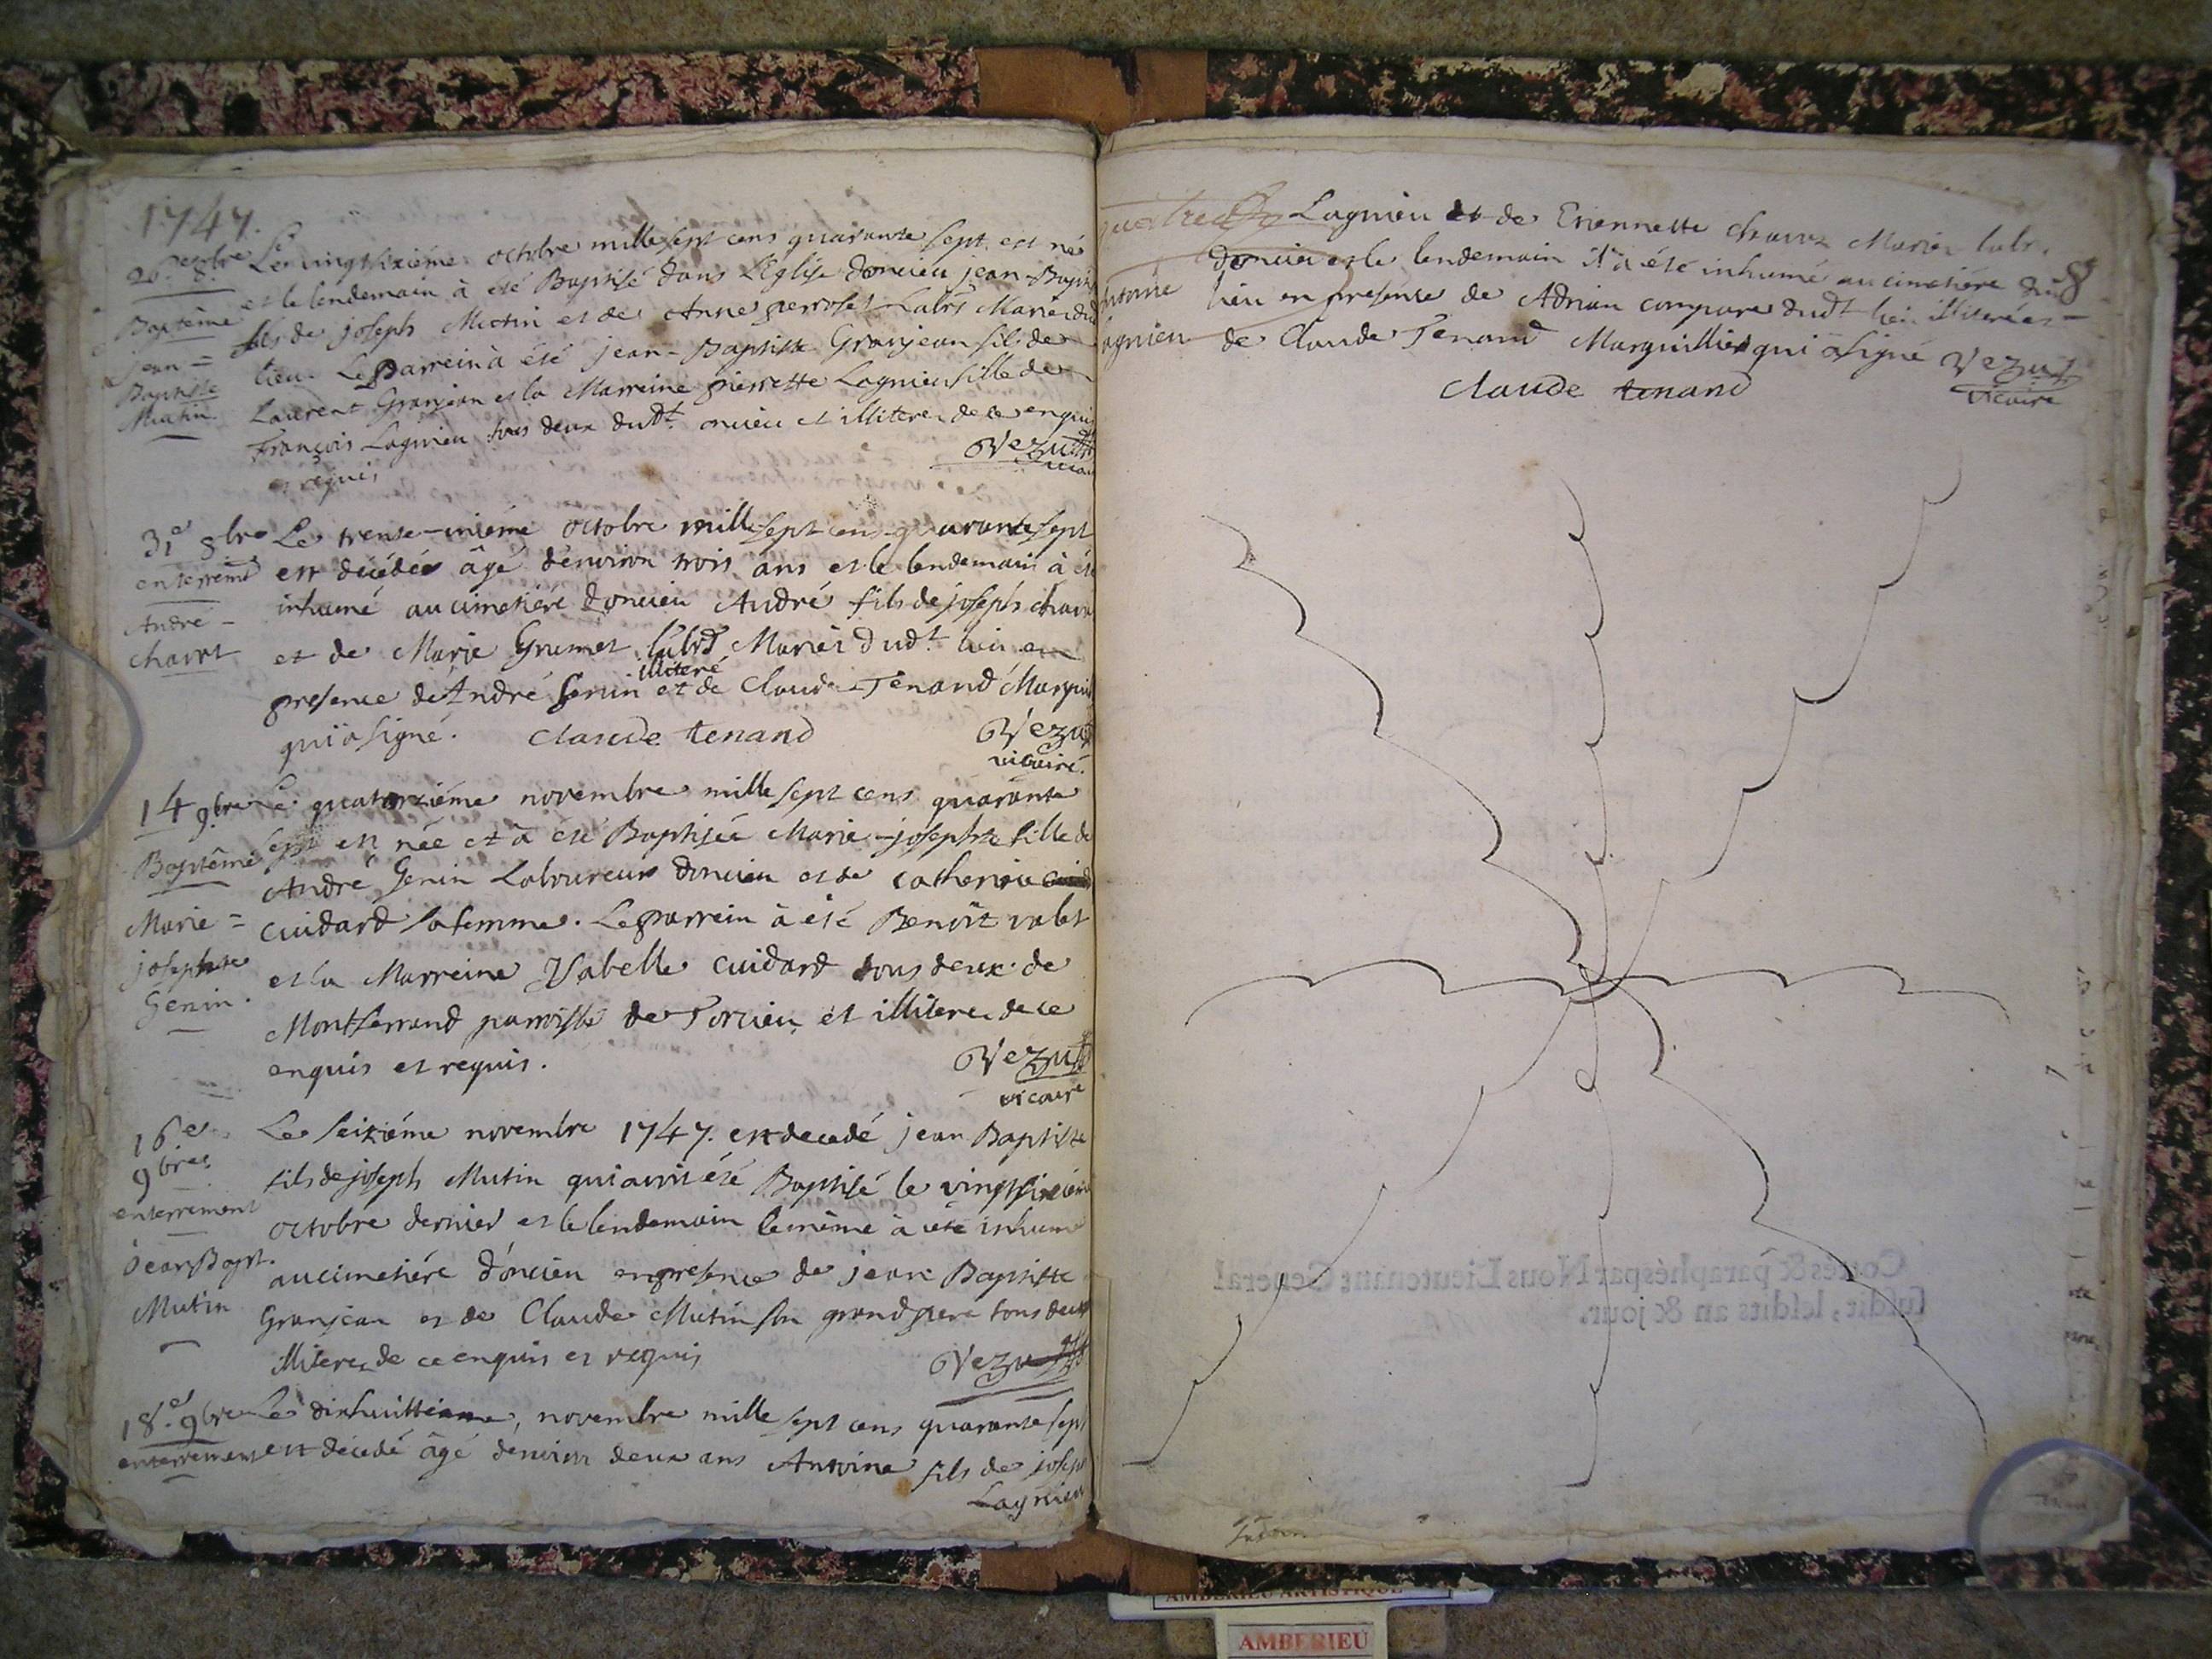 1747.
26e 8bre
Baptême
jean =
Baptiste
Mutin.
Le vingtsixiéme octobre mille sept cens quarante sept est né
et le lendemain à été Baptisé dans L'Eglise doncieu jean-Baptis
fils de joseph Mutin et de Anne perroset Labrs Mariés dud
lieu. Le parrein à été jean-Baptiste Granjean fils de
Laurent Granjean et la Marreine pierrette Lagnieu fille de
François Lagnieu tous deux dudt. oncieu et illiterez de ce enquis
et requis
Vezu
vicaire
31e 8bre
enterremt
André
chavot
Le trente-unième octobre mille sept cens quarante sept
est décédé âgé d'environ trois ans et le lendemain à été
inhumé au cimetiére doncieu André fils de joseph chavo
et de Marie Grumet labrs Mariés dudt. lieu en
illiteré
presence de André Genin et de Claude Tenand Marguil
qui a signé. claude tenand
Vezu
vicaire.
14 9bre
Baptême
Marie =
josephte
Genin.
Le quatorziéme novembre mille sept cens quarante
sept est née et à été Baptisée Marie-josephte fille de
André Genin Laboureur doncieu et de catherine
cuidard sa femme. Le parrein à été Benoît valet
et la Marreine Ysabelle cuidard tous deux de
Montferrand parroisse de Torcieu et illiterez de ce
enquis et requis.
Vezu
vicaire
16e
9bre
enterrement
Jean Bapt.
Mutin
Le seiziéme novembre 1747. est decedé jean Baptiste
fils de joseph Mutin qui avoit été Baptisé le vingtsixiém
octobre dernier et le lendemain le même à été inhumé
au cimetiére d'oncieu en presence de jean Baptiste
Granjean et de Claude Mutin son grand pere tous deux
illiterez de ce enquis et requis
Vezu
18e 9bre
enterrement
Le dixhuittieme, novembre mille sept cens quarante sept
est décedé âgé d'environ deux ans Antoine fils de joseph
Lagnieu
ntoine
agnieu
Lagnieu et de Etiennette chavoz Mariez labr.
doncieu et le lendemain il a été inhumé au cimetiére dud
8
lieu en presence de Adrian compare dudt lieu illiteré et
de Claude Tenand Marguillier qui a signé Vezu
claude tenand
vicaire
Cottés & paraphés par Nous Lieutenant General
susdit, lesdits an & jour.
AMBERIEU ARTISTIQUE
AMBERIEU